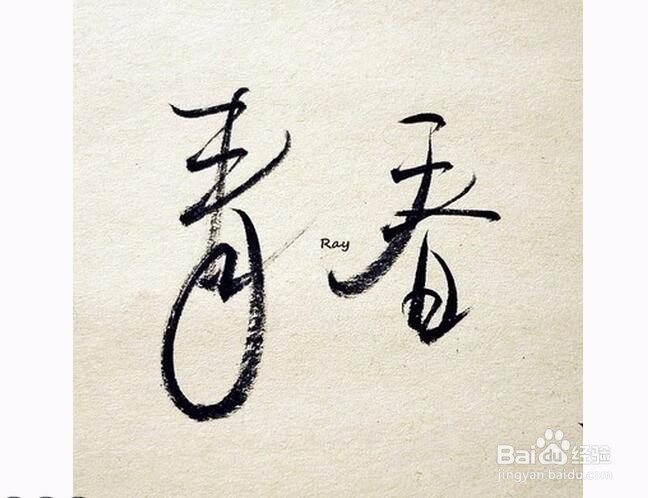 青春
Ray
Baidu 经验
jingyan.baidu.com